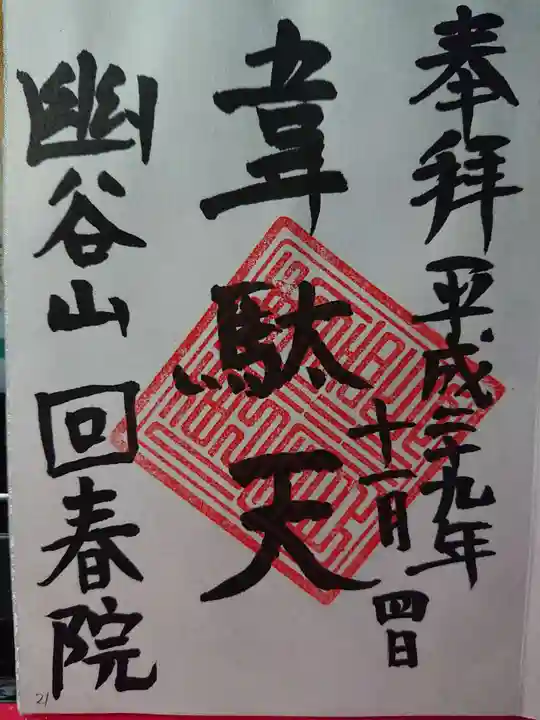 奉拝
平成二十九年
十一月四日
韋駄天
幽谷山 回春院
21